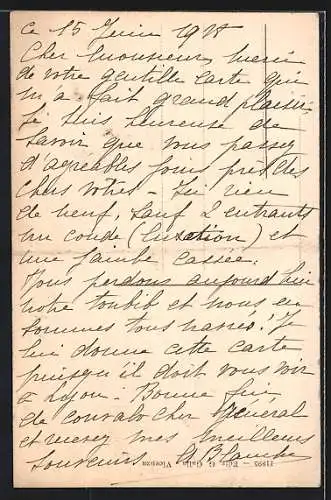 Ce 15 Juin 1918
Cher Monsieur, merci
de votre gentille carte qui
m'a fait grand plaisir.
Je suis heureuse de
savoir que vous passez
d'agréables jours près des
chers vôtres - Ici rien
de neuf, sauf 2 entrants
un coude (luxation) et
une jambe cassée.
Nous perdons aujourd'hui
notre toubib et nous en
sommes tous navrés! Je
lui donne cette carte
puisqu'il doit vous voir
à Lyon - Bonne fin
de conval. cher Général
et recevez mes meilleurs
souvenirs
11995 - Ediz. G. Galla - Vicenza